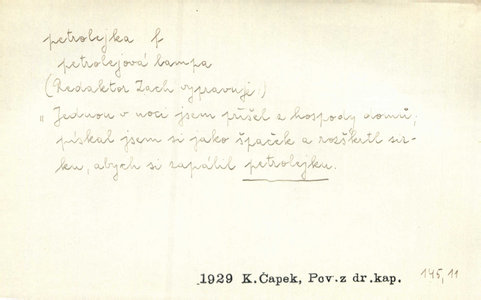 petrolejka f
petrolejová lampa
(Redaktor Zach vypravuje:)
„Jednou v noci jsem přišel z hospody domů;
pískal jsem si jako špaček a rozškrtl sir-
ku, abych si zapálil petrolejku.
1929 K.Čapek, Pov.z dr.kap. 145,11